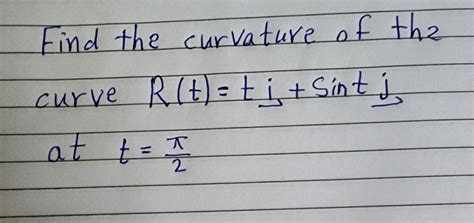 Find the curvature of the
curve R(t) = t i + Sint j
at t = π/2